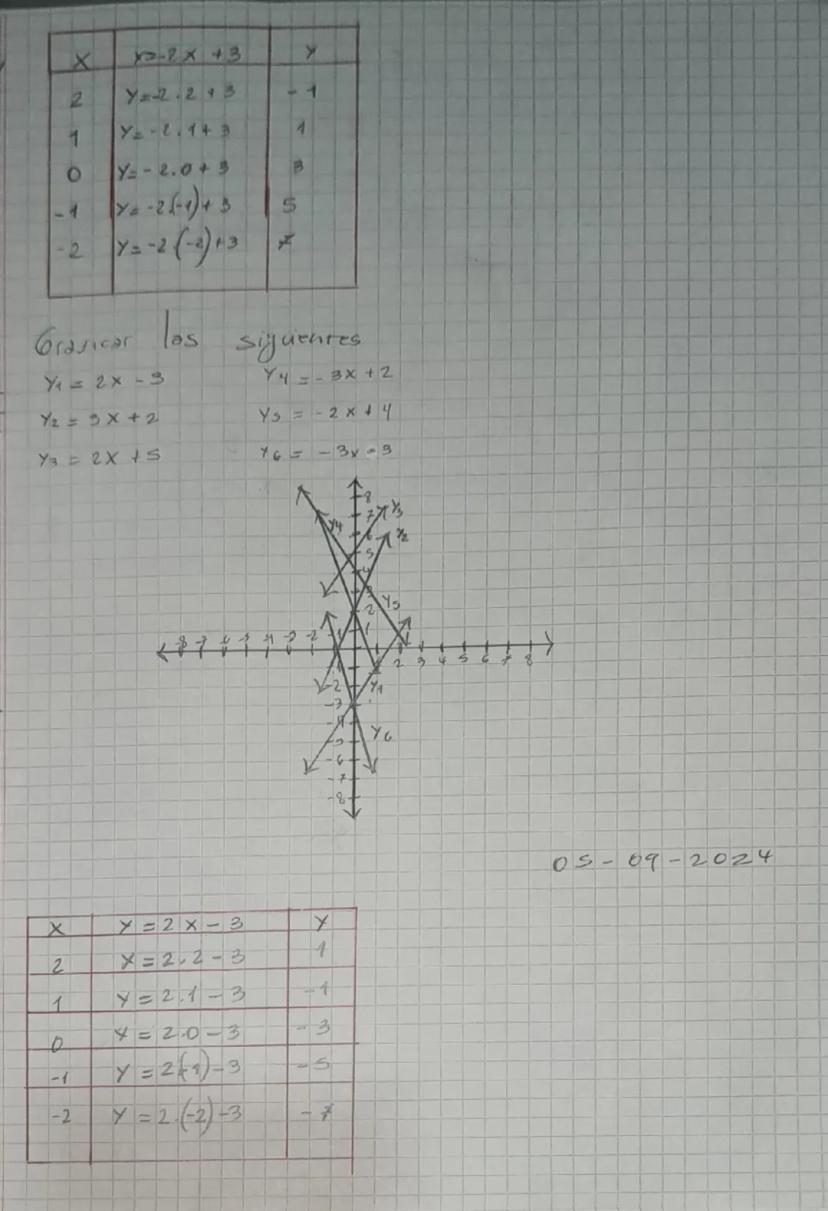 X Y=-2X+3 Y
2 Y=-2.2+3 -1
1 Y=-2.1+3 1
0 Y=-2.0+3 3
-1 Y=-2(-1)+3 5
-2 Y=-2(-2)+3 7
Graficar las siguientes
Y1 = 2X - 3 Y4 = -3X + 2
Y2 = 3X + 2 Y5 = -2X + 4
Y3 = 2X + 5 Y6 = -3X - 3
8
7 Y3
Y4 6 Y2
5
4
3 Y5
2
1
-8 -7 -6 -5 -4 -3 -2 2 3 4 5 6 7 8
-2 Y1
-3
-4 Y6
-5
-6
-7
-8
05-09-2024
X Y=2X-3 Y
2 Y=2.2-3 1
1 Y=2.1-3 -1
0 Y=2.0-3 -3
-1 Y=2(-1)-3 -5
-2 Y=2.(-2)-3 -7